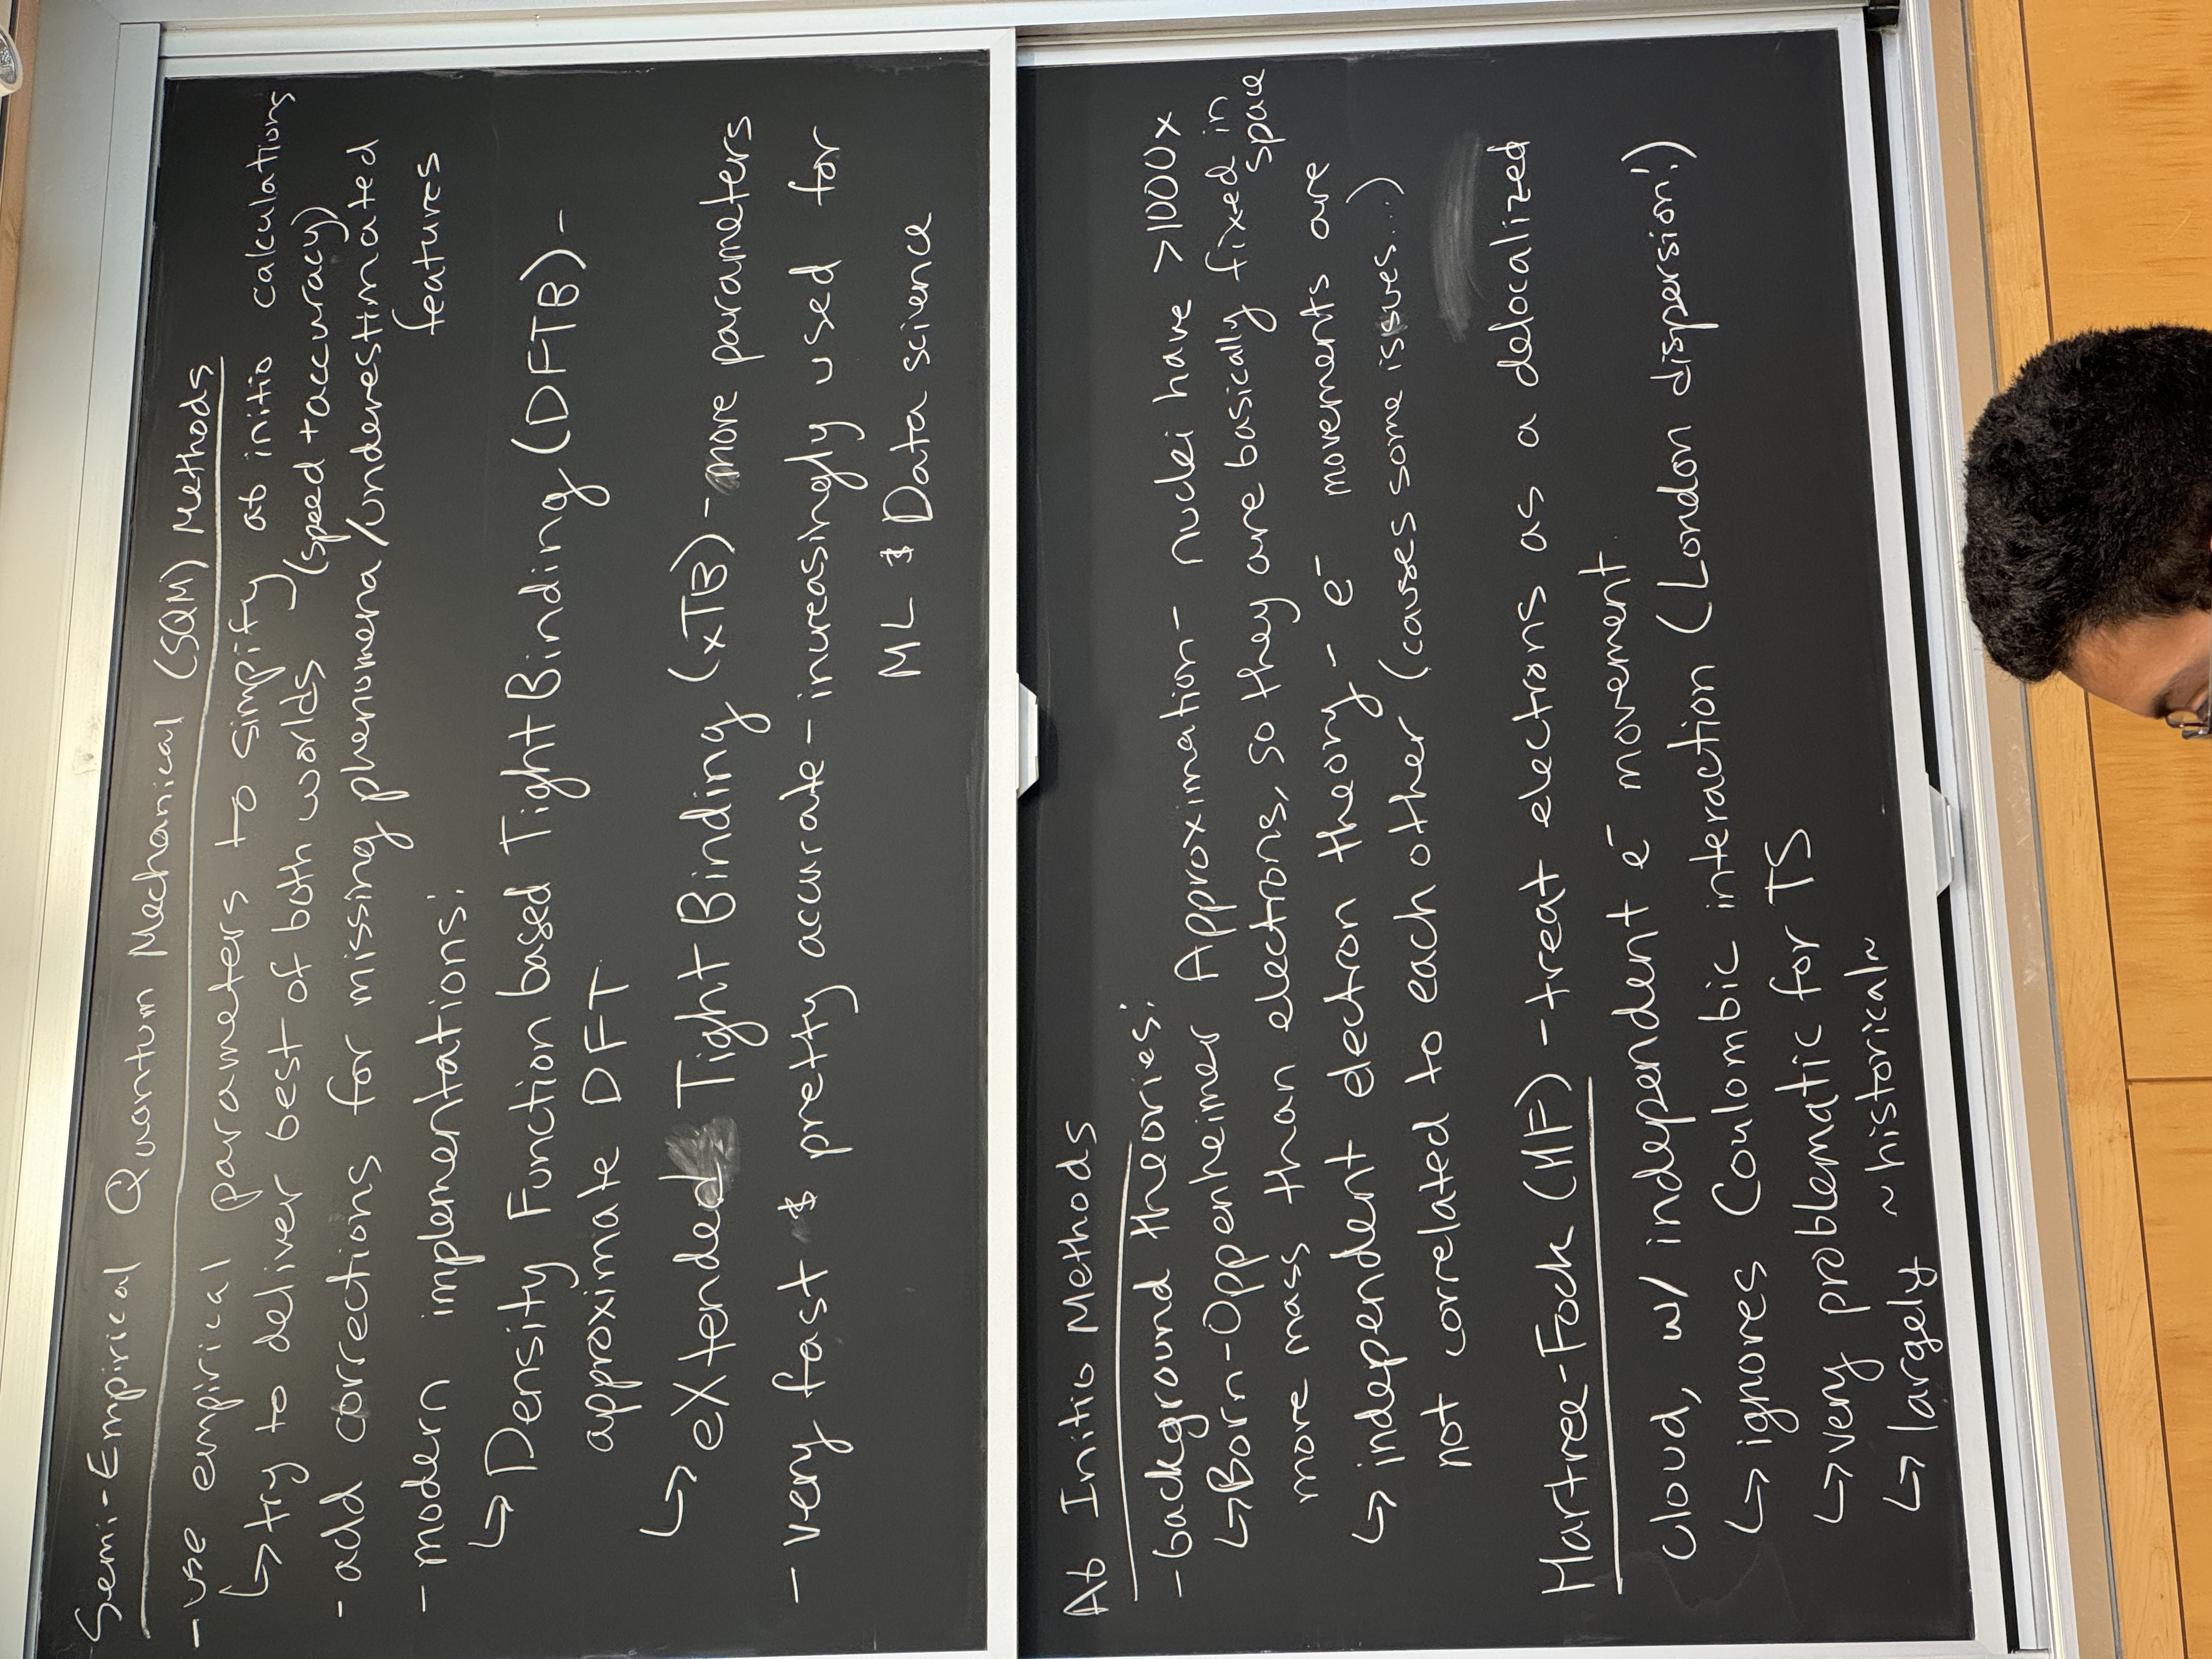 Semi-Empirical Quantum Mechanical (SQM) Methods
- use empirical parameters to simpify ab initio calculations
↳ try to deliver best of both worlds - (speed + accuracy)
- add corrections for missing phenomena/underestimated
features
- modern implementations:
↳ Density Function based Tight Binding (DFTB) -
approximate DFT
↳ eXtended Tight Binding (xTB) - more parameters
- very fast & pretty accurate - increasingly used for
ML & Data science
Ab Initio Methods
- background theories:
↳ Born-Oppenheimer Approximation - nuclei have >1000x
more mass than electrons, so they are basically fixed in
space
↳ independent electron theory - e⁻ movements are
not correlated to each other (causes some issues...)
Hartree-Fock (HF) - treat electrons as a delocalized
cloud, w/ independent e⁻ movement
↳ ignores Coulombic interaction (London dispersion!)
↳ very problematic for TS
↳ largely ~historical~